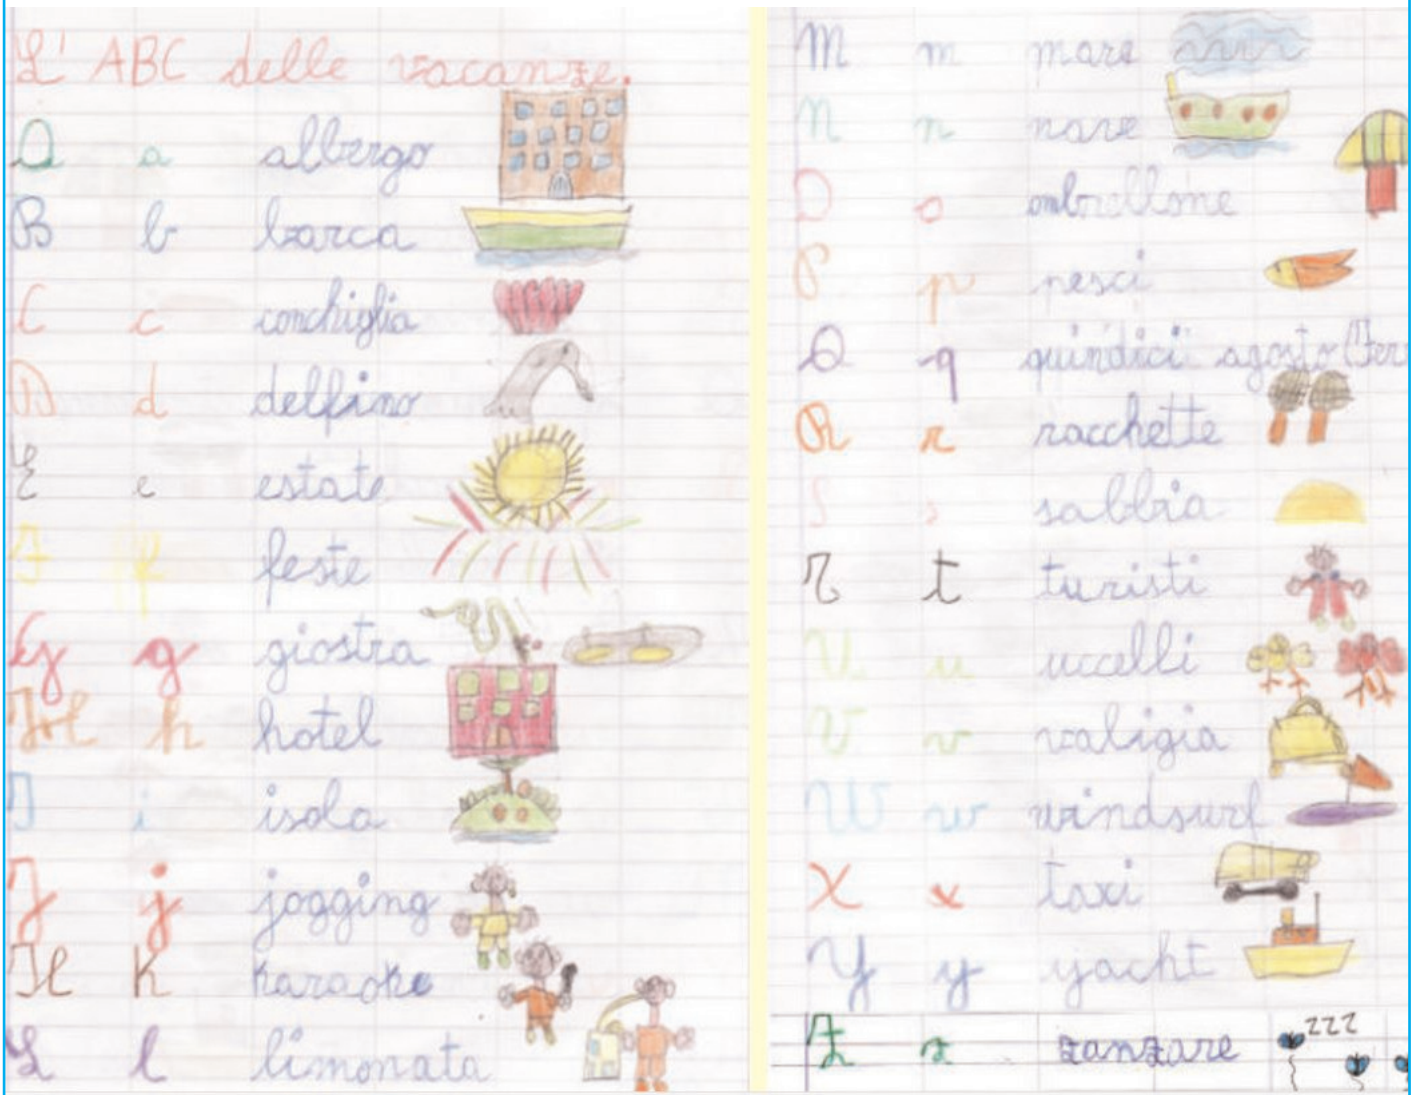 L' ABC delle vacanze.
A a albergo
B b barca
C c conchiglia
D d delfino
E e estate
F f feste
G g giostra
H h hotel
I i isola
J j jogging
K k karaoke
L l limonata
M m mare
N n nave
O o ombrellone
P p pesci
Q q quindici agosto (Fer
R r racchette
S s sabbia
T t turisti
U u uccelli
V v valigia
W w windsurf
X x taxi
Y y yacht
Z z zanzare
zzz